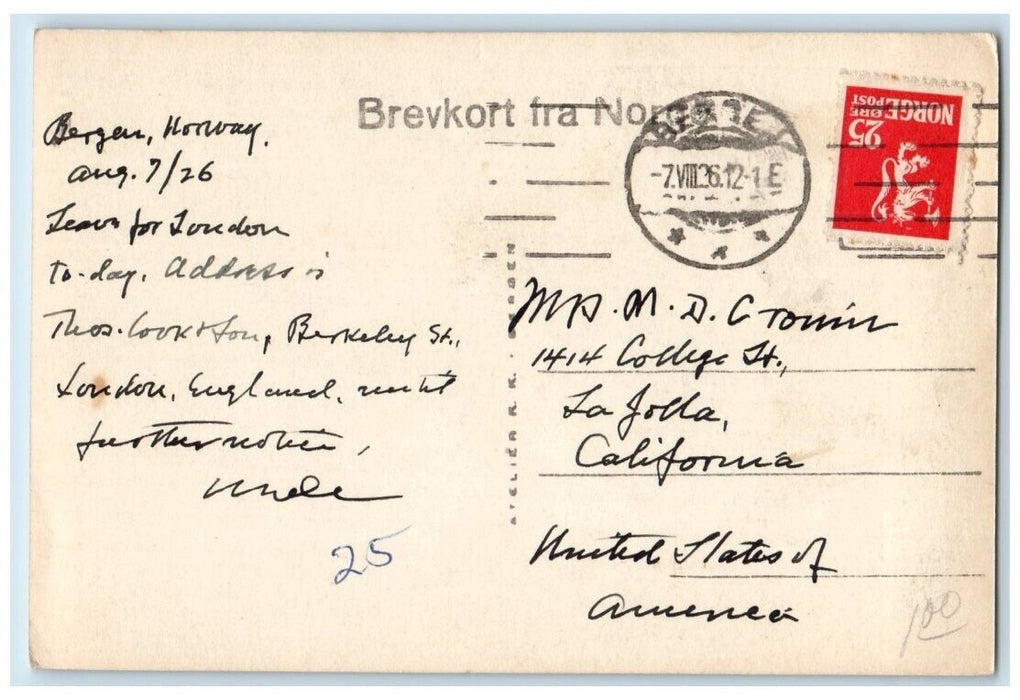 Brevkort fra Nor
BERGEN
-7.VIII.26.12-1 E
NORGE
POST
25 ØRE
Bergen, Norway.
Aug. 7/26
Leave for London
to-day. Address is
Thos. Cook & Son, Berkeley St.,
London, England, until
further notice,
Uncle
25
ATELIER K.K. BERGEN
Mrs. M. D. Cronin
1414 College St.,
La Jolla,
California
United States of
America
100